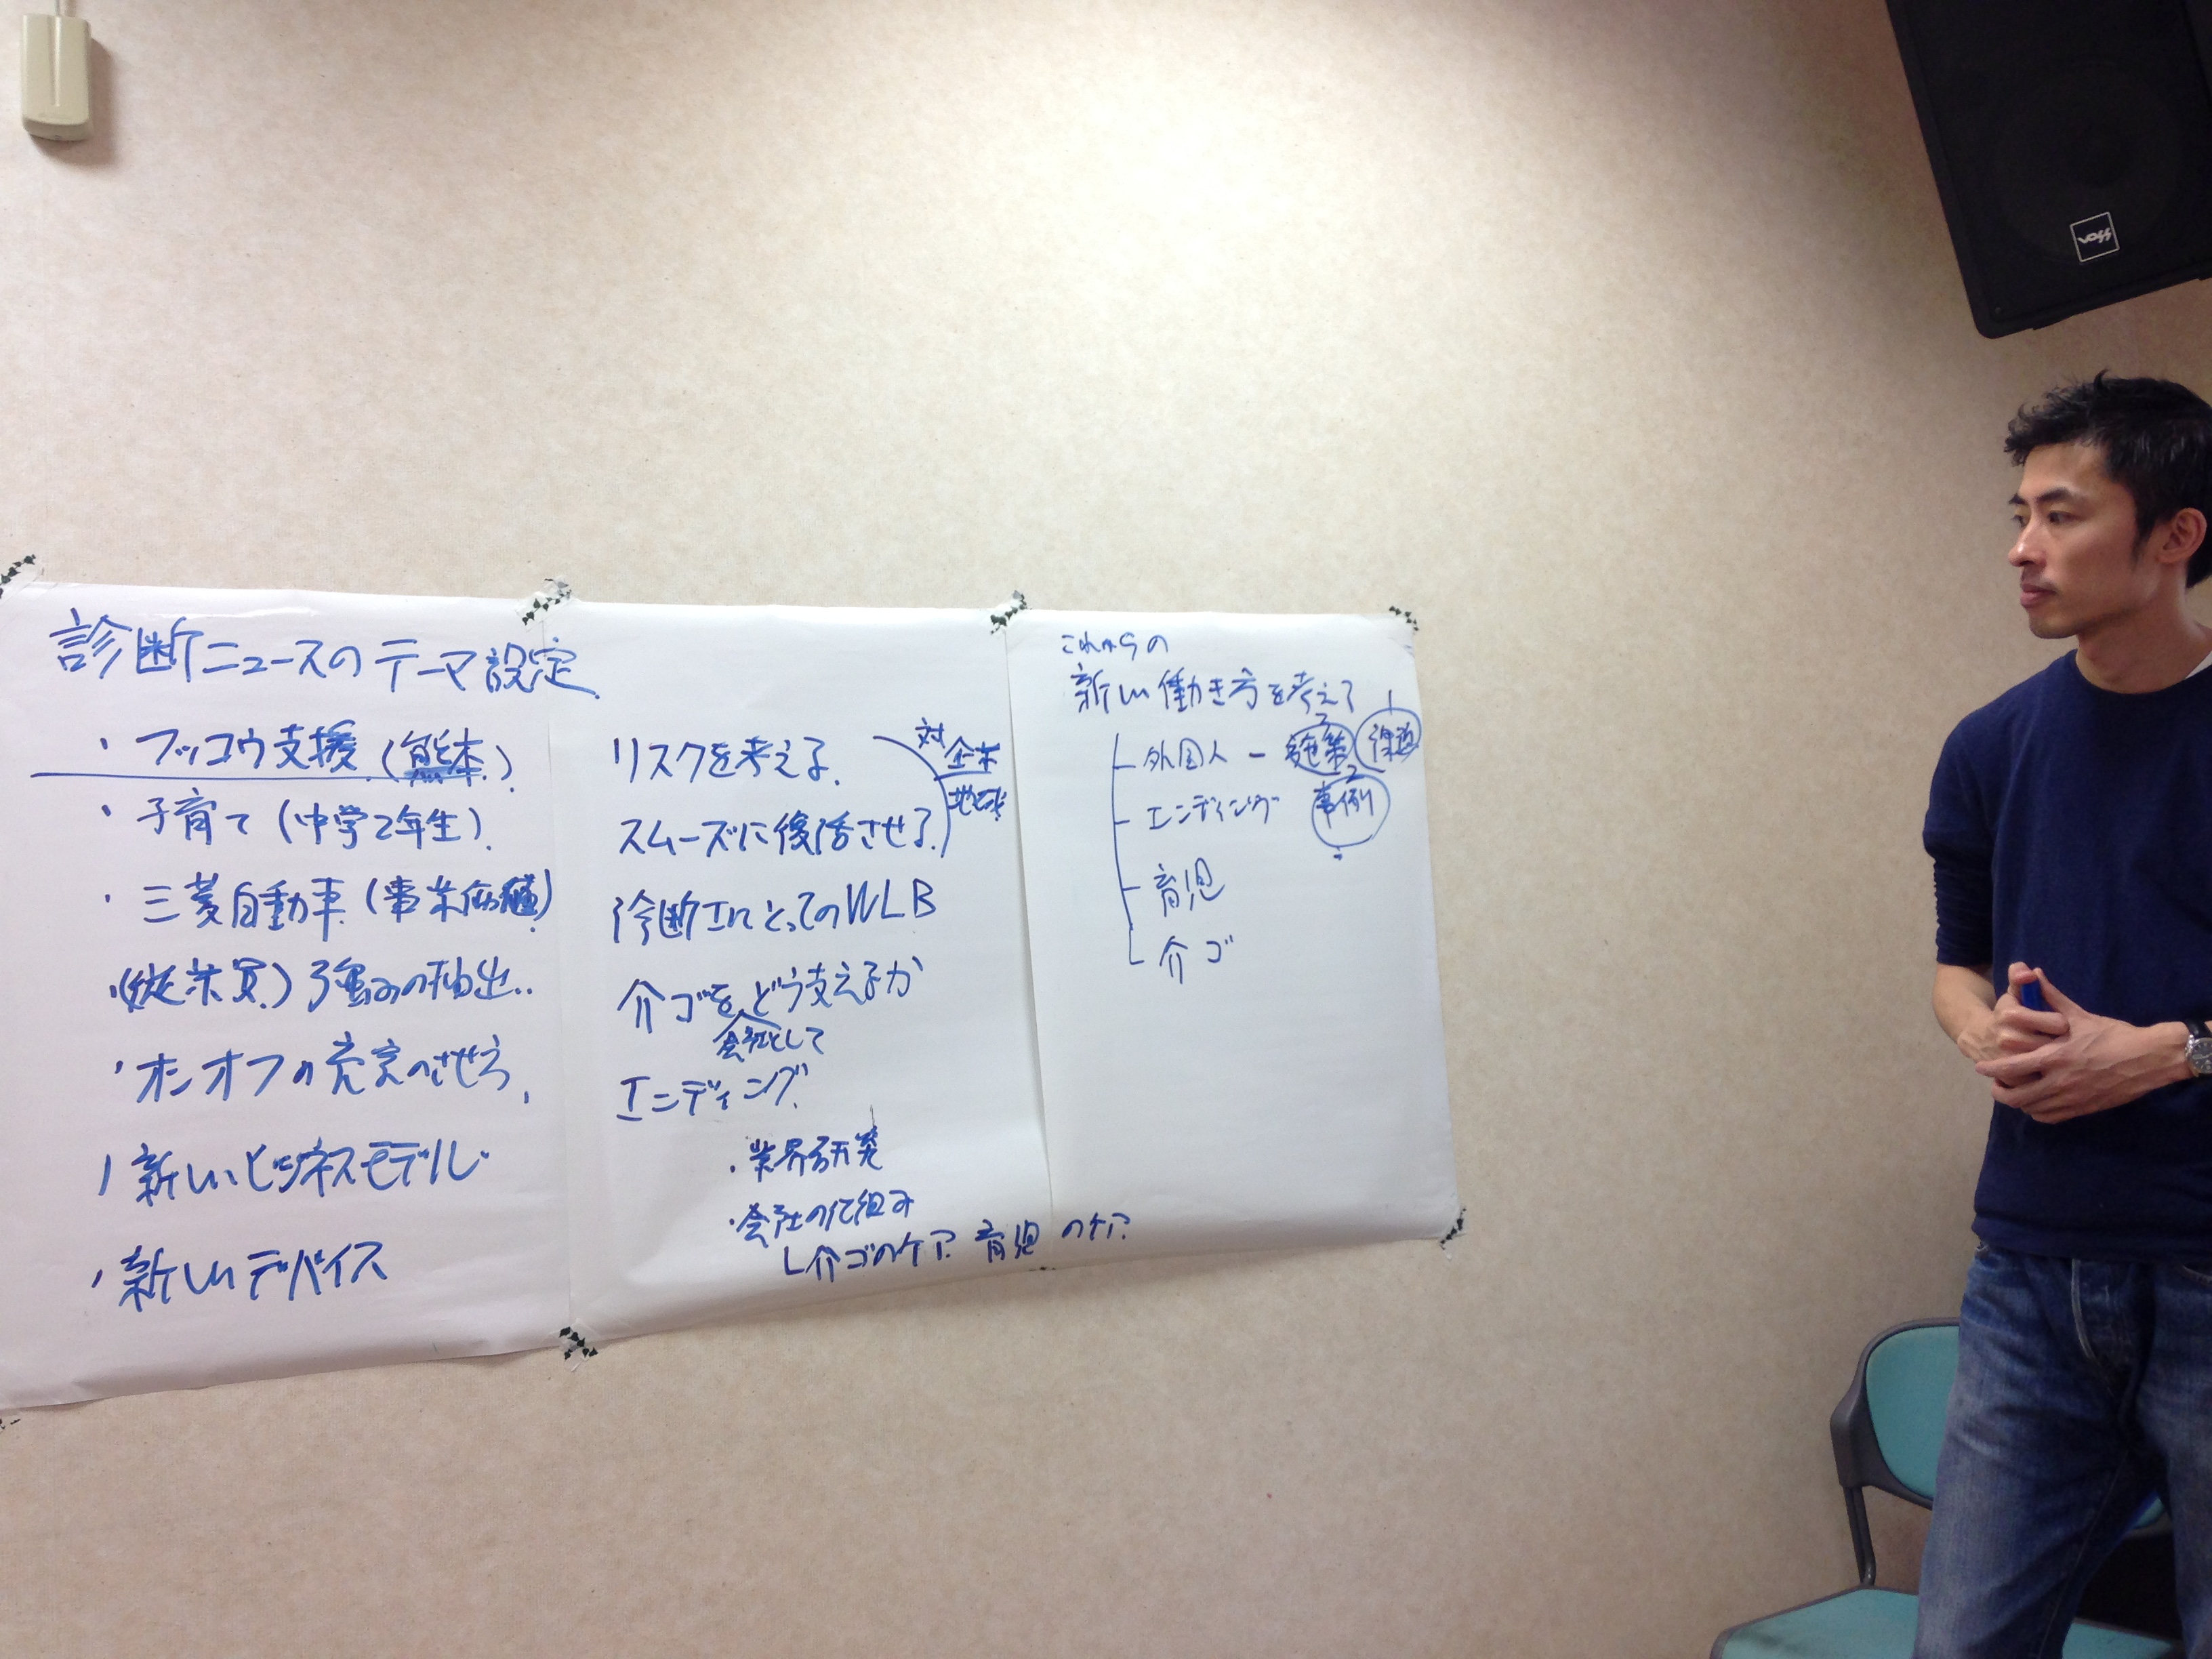 診断ニュースのテーマ設定
・フッコウ支援(熊本)
・子育て(中学2年生)
・三菱自動車(事業
・(従業員)強みの抽出..
・オンオフの充実のさせ方
・新しいビジネスモデル
・新しいデバイス
リスクを考える
スムーズに復活させる
対 企業
地域
診断士にとってのWLB
介ゴをどう支えるか
会社として
エンディング
・業界研究
・会社の仕組み
介ゴのケア 育児のケア
これからの
新しい働き方を考える
外国人 - 施策 課題
エンディング 事例
育児
介ゴ
VOSS